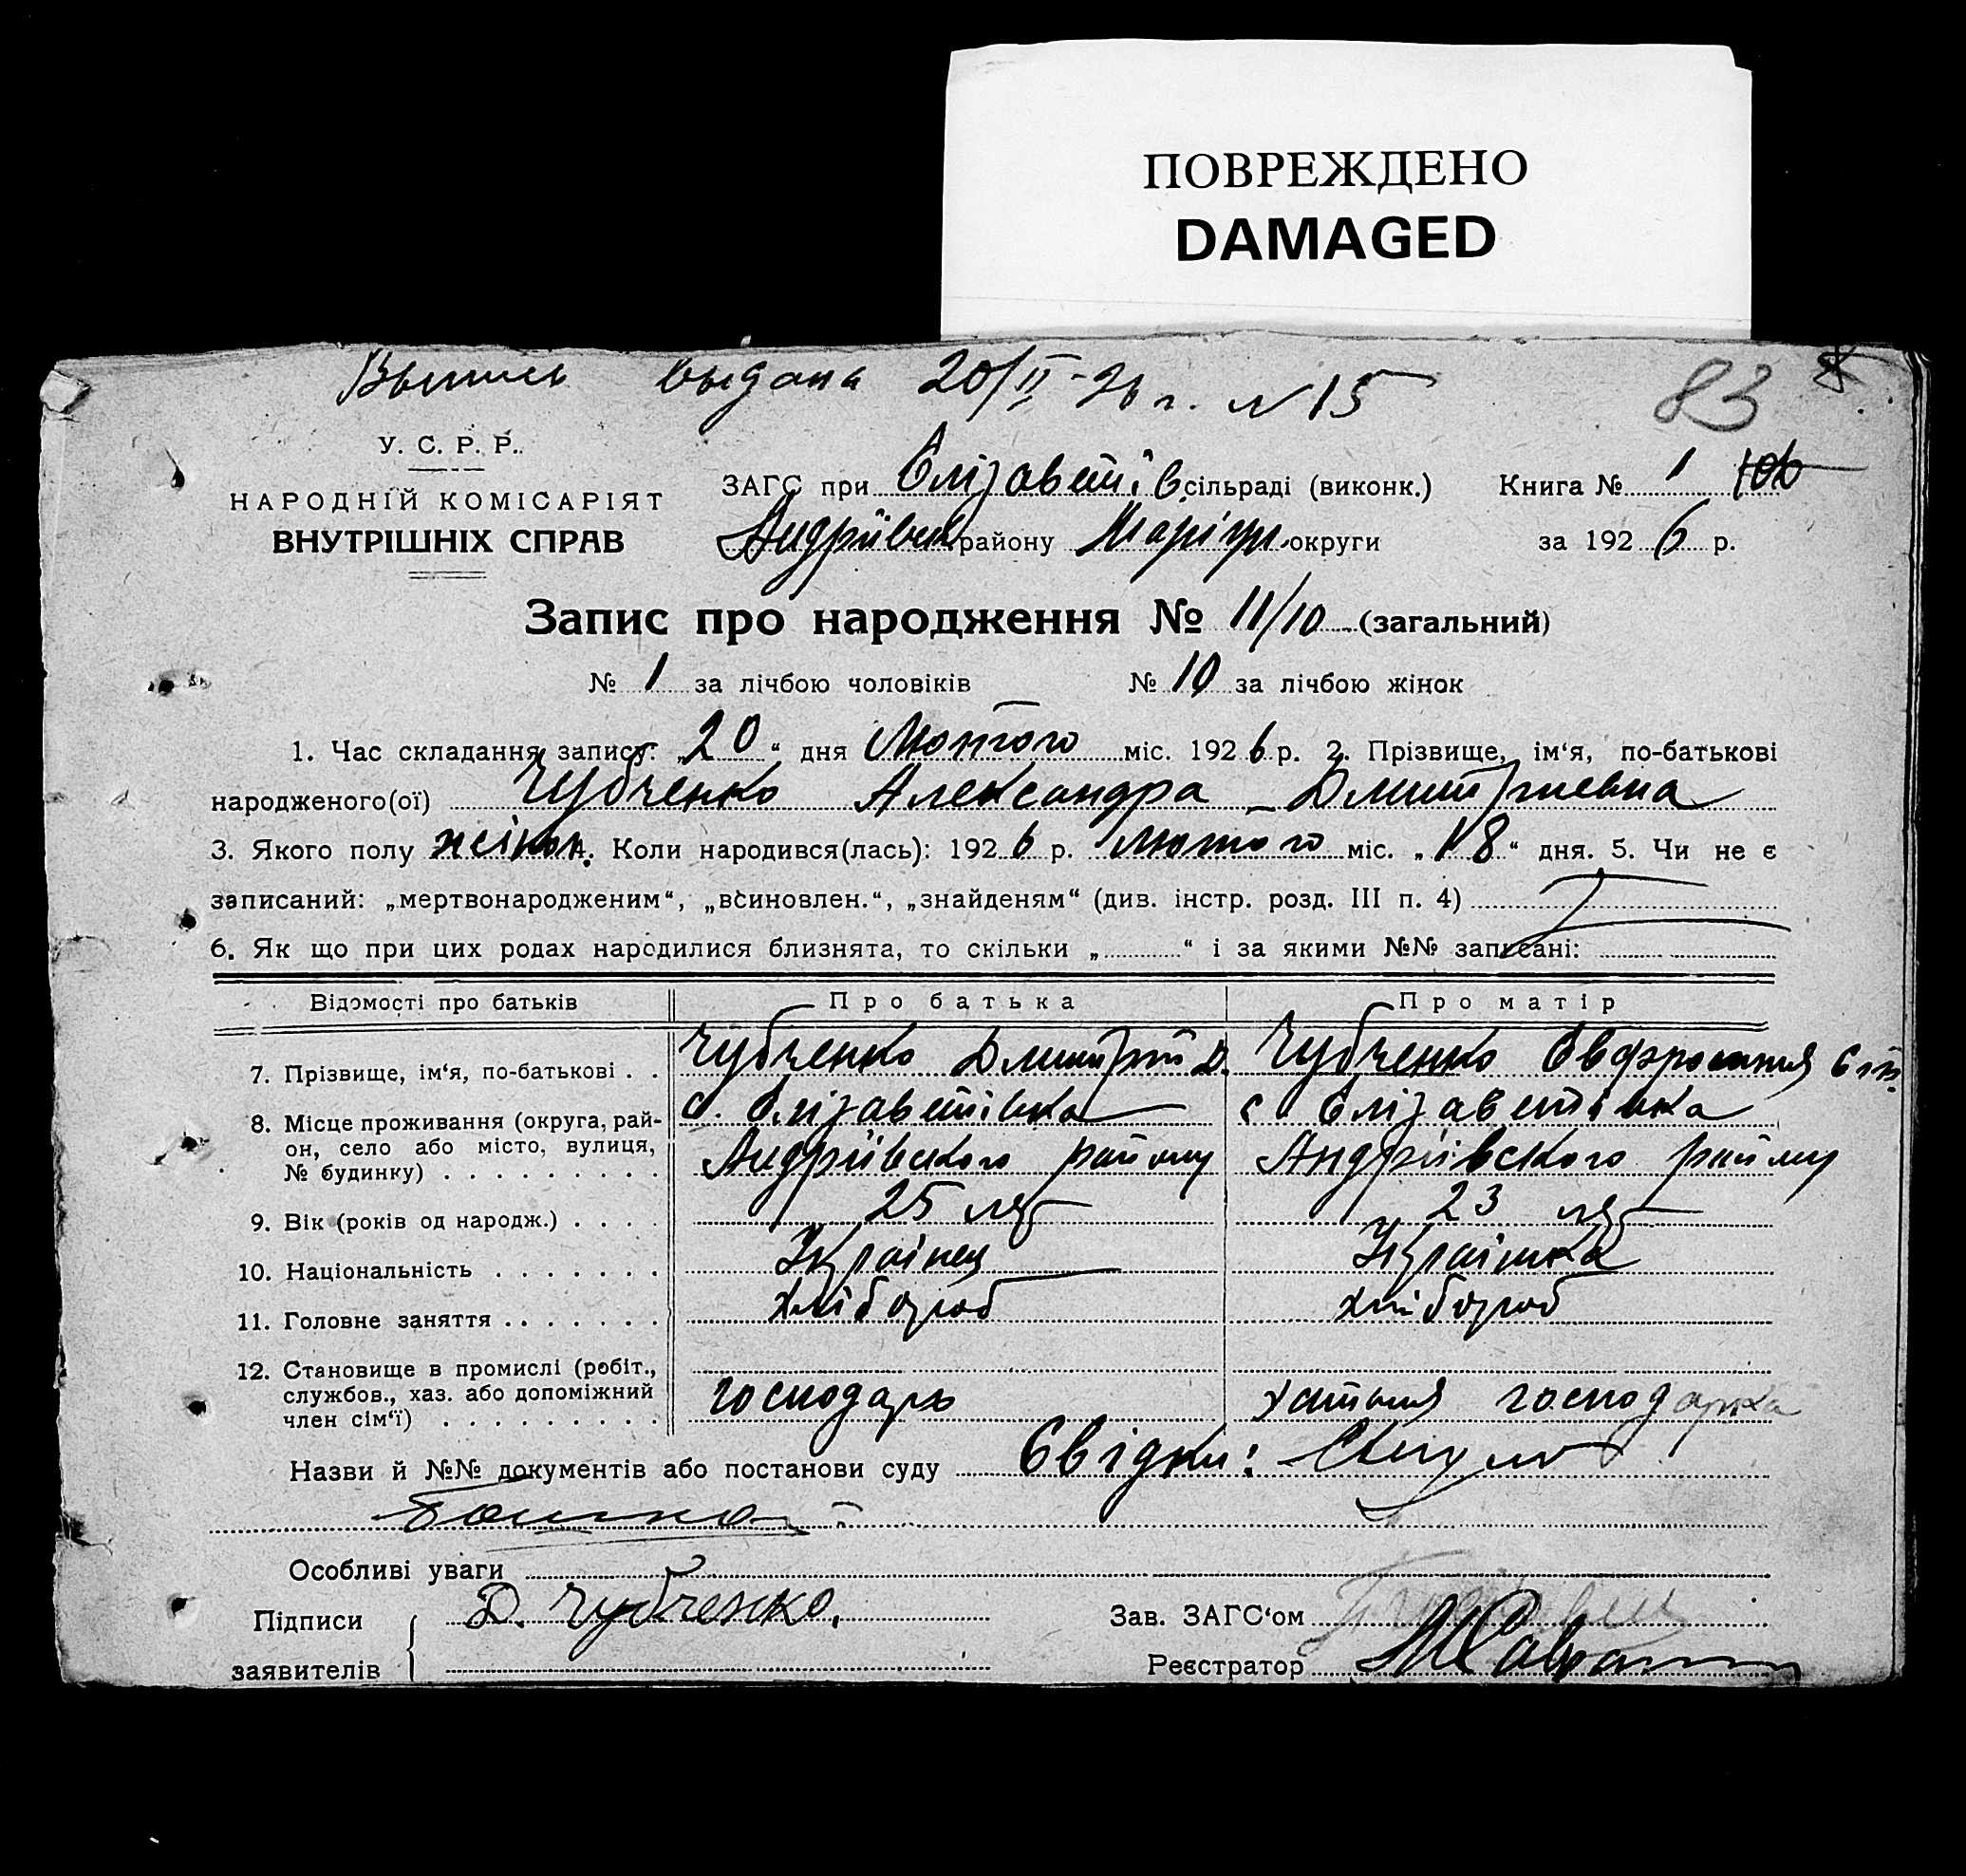 ПОВРЕЖДЕНО
DAMAGED
Выпись выдана 20/II-26 г. №15
83
У. С. Р. Р.
НАРОДНІЙ КОМІСАРІЯТ
ВНУТРІШНІХ СПРАВ
ЗАГС при Єлізаветів. сільраді (виконк.) Книга № 1 106
Андріївськ району Маріуп. округи за 1926 р.
Запис про народження № 11/10 (загальний)
№ 1 за лічбою чоловіків № 10 за лічбою жінок
1. Час складання запису: „20“ дня Лютого міс. 1926 р. 2. Прізвище, ім‘я, по-батькові
народженого(ої) Чубченко Александра Дмитриевна
3. Якого полу жіноч. Коли народився(лась): 1926 р. лютого міс. „18“ дня. 5. Чи не є
записаний: „мертвонародженим“, „всиновлен.“, „знайденям“ (див. інстр. розд. III п. 4)
6. Як що при цих родах народилися близнята, то скільки „ “ і за якими №№ записані:
Відомості про батьків Про батька Про матір
7. Прізвище, ім‘я, по-батькові . . Чубченко Дмитрій Д. Чубченко Евфросиния
8. Місце проживання (округа, рай- с. Єлізаветівка с Єлізаветівка
он, село або місто, вулиця,
№ будинку) . . . . . . . . . Андріївського району Андріївського району
9. Вік (років од народж.) . . . . 25 літ 23 літ
10. Національність . . . . . . . Українец Українка
11. Головне заняття . . . . . . . хлібороб хлібороб
12. Становище в промислі (робіт.,
службов., хаз. або допоміжний
член сім‘ї) . . . . . . . . . господарь хатня господарка
Назви й №№ документів або постанови суду Свідки:
Особливі уваги
Підписи Д. Чубченко. Зав. ЗАГС‘ом
заявителів Реєстратор